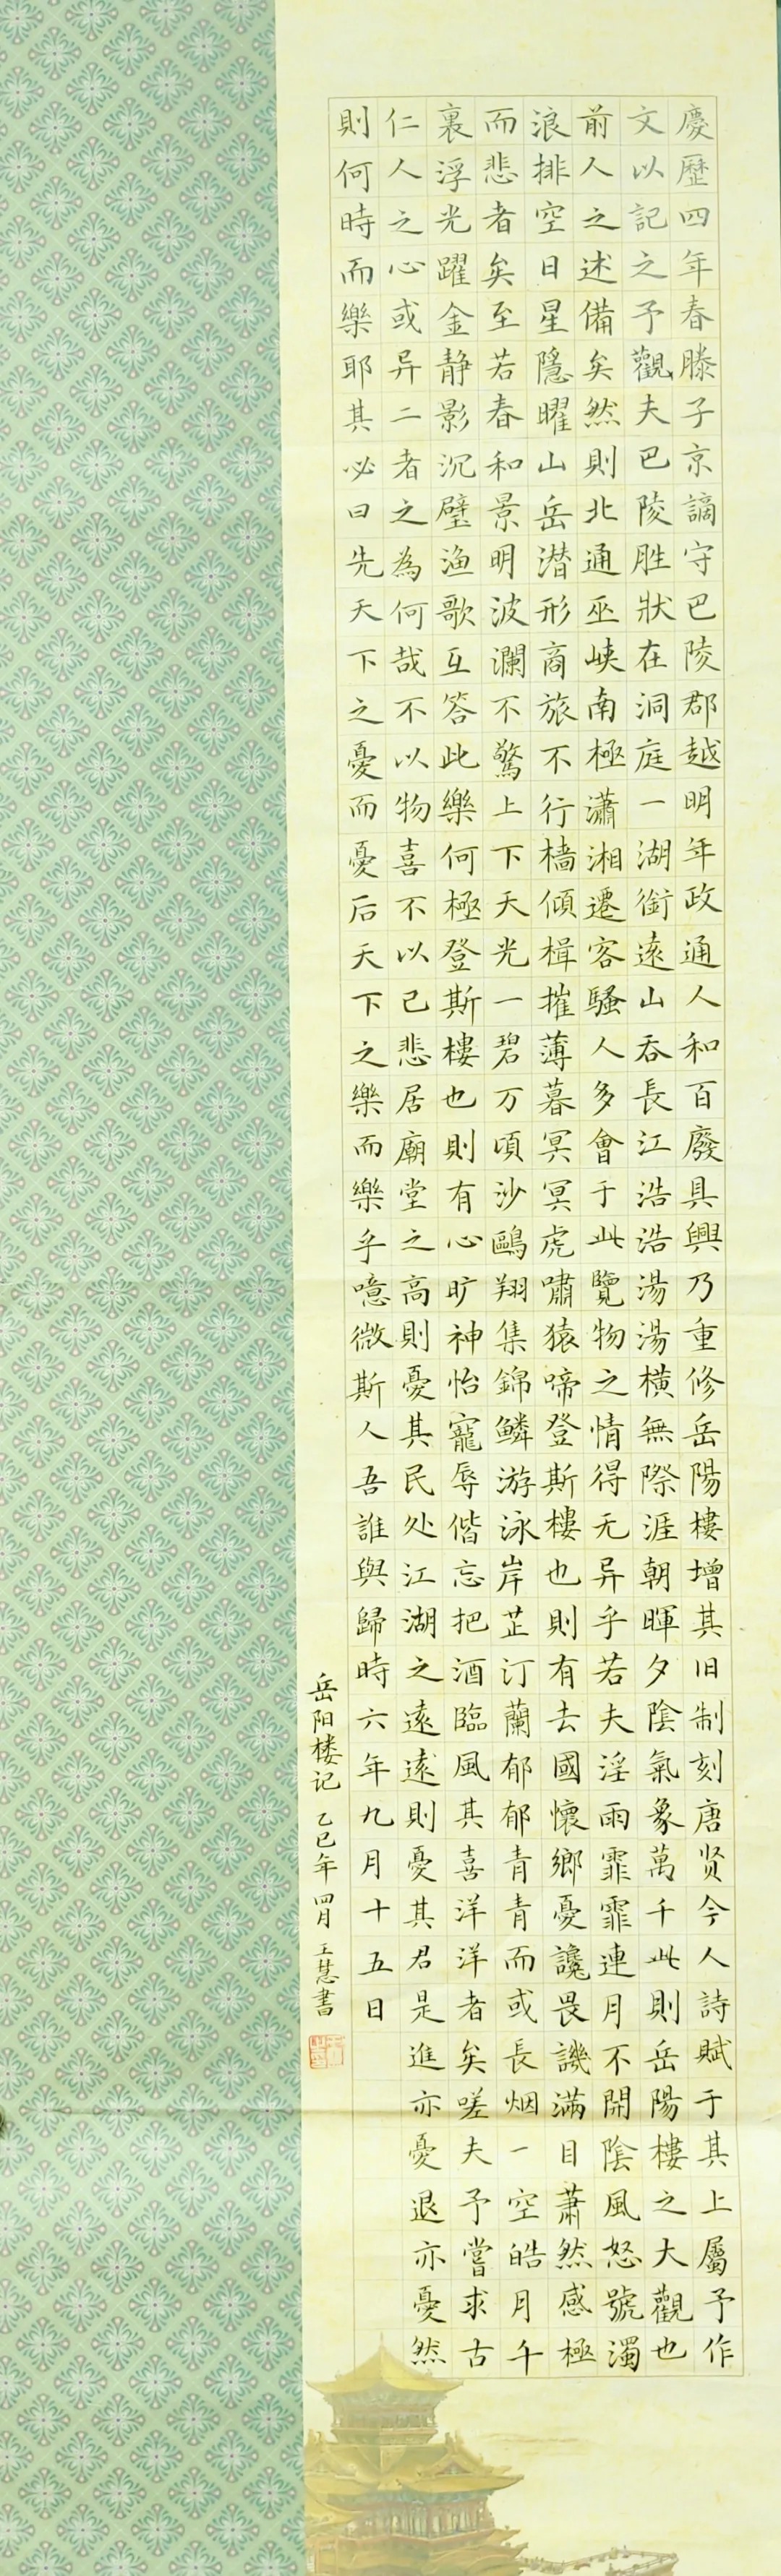 慶歷四年春滕子京謫守巴陵郡越明年政通人和百廢具興乃重修岳陽樓增其旧制刻唐贤今人詩賦于其上屬予作
文以記之予觀夫巴陵胜狀在洞庭一湖銜遠山吞長江浩浩湯湯橫無際涯朝暉夕陰氣象萬千此則岳陽樓之大觀也
前人之述備矣然則北通巫峽南極瀟湘遷客騷人多會于此覽物之情得无异乎若夫淫雨霏霏連月不開陰風怒號濁
浪排空日星隱曜山岳潜形商旅不行檣傾楫摧薄暮冥冥虎嘯猿啼登斯樓也則有去國懷鄉憂讒畏譏滿目蕭然感極
而悲者矣至若春和景明波瀾不驚上下天光一碧万頃沙鷗翔集錦鳞游泳岸芷汀蘭郁郁青青而或長烟一空皓月千
裏浮光躍金静影沉璧渔歌互答此樂何極登斯樓也則有心旷神怡寵辱偕忘把酒臨風其喜洋洋者矣嗟夫予嘗求古
仁人之心或异二者之為何哉不以物喜不以己悲居廟堂之高則憂其民处江湖之遠遠則憂其君是進亦憂退亦憂然
則何時而樂耶其必曰先天下之憂而憂后天下之樂而樂乎噫微斯人吾誰與歸時六年九月十五日
岳阳楼记 乙巳年 四月 王慧書